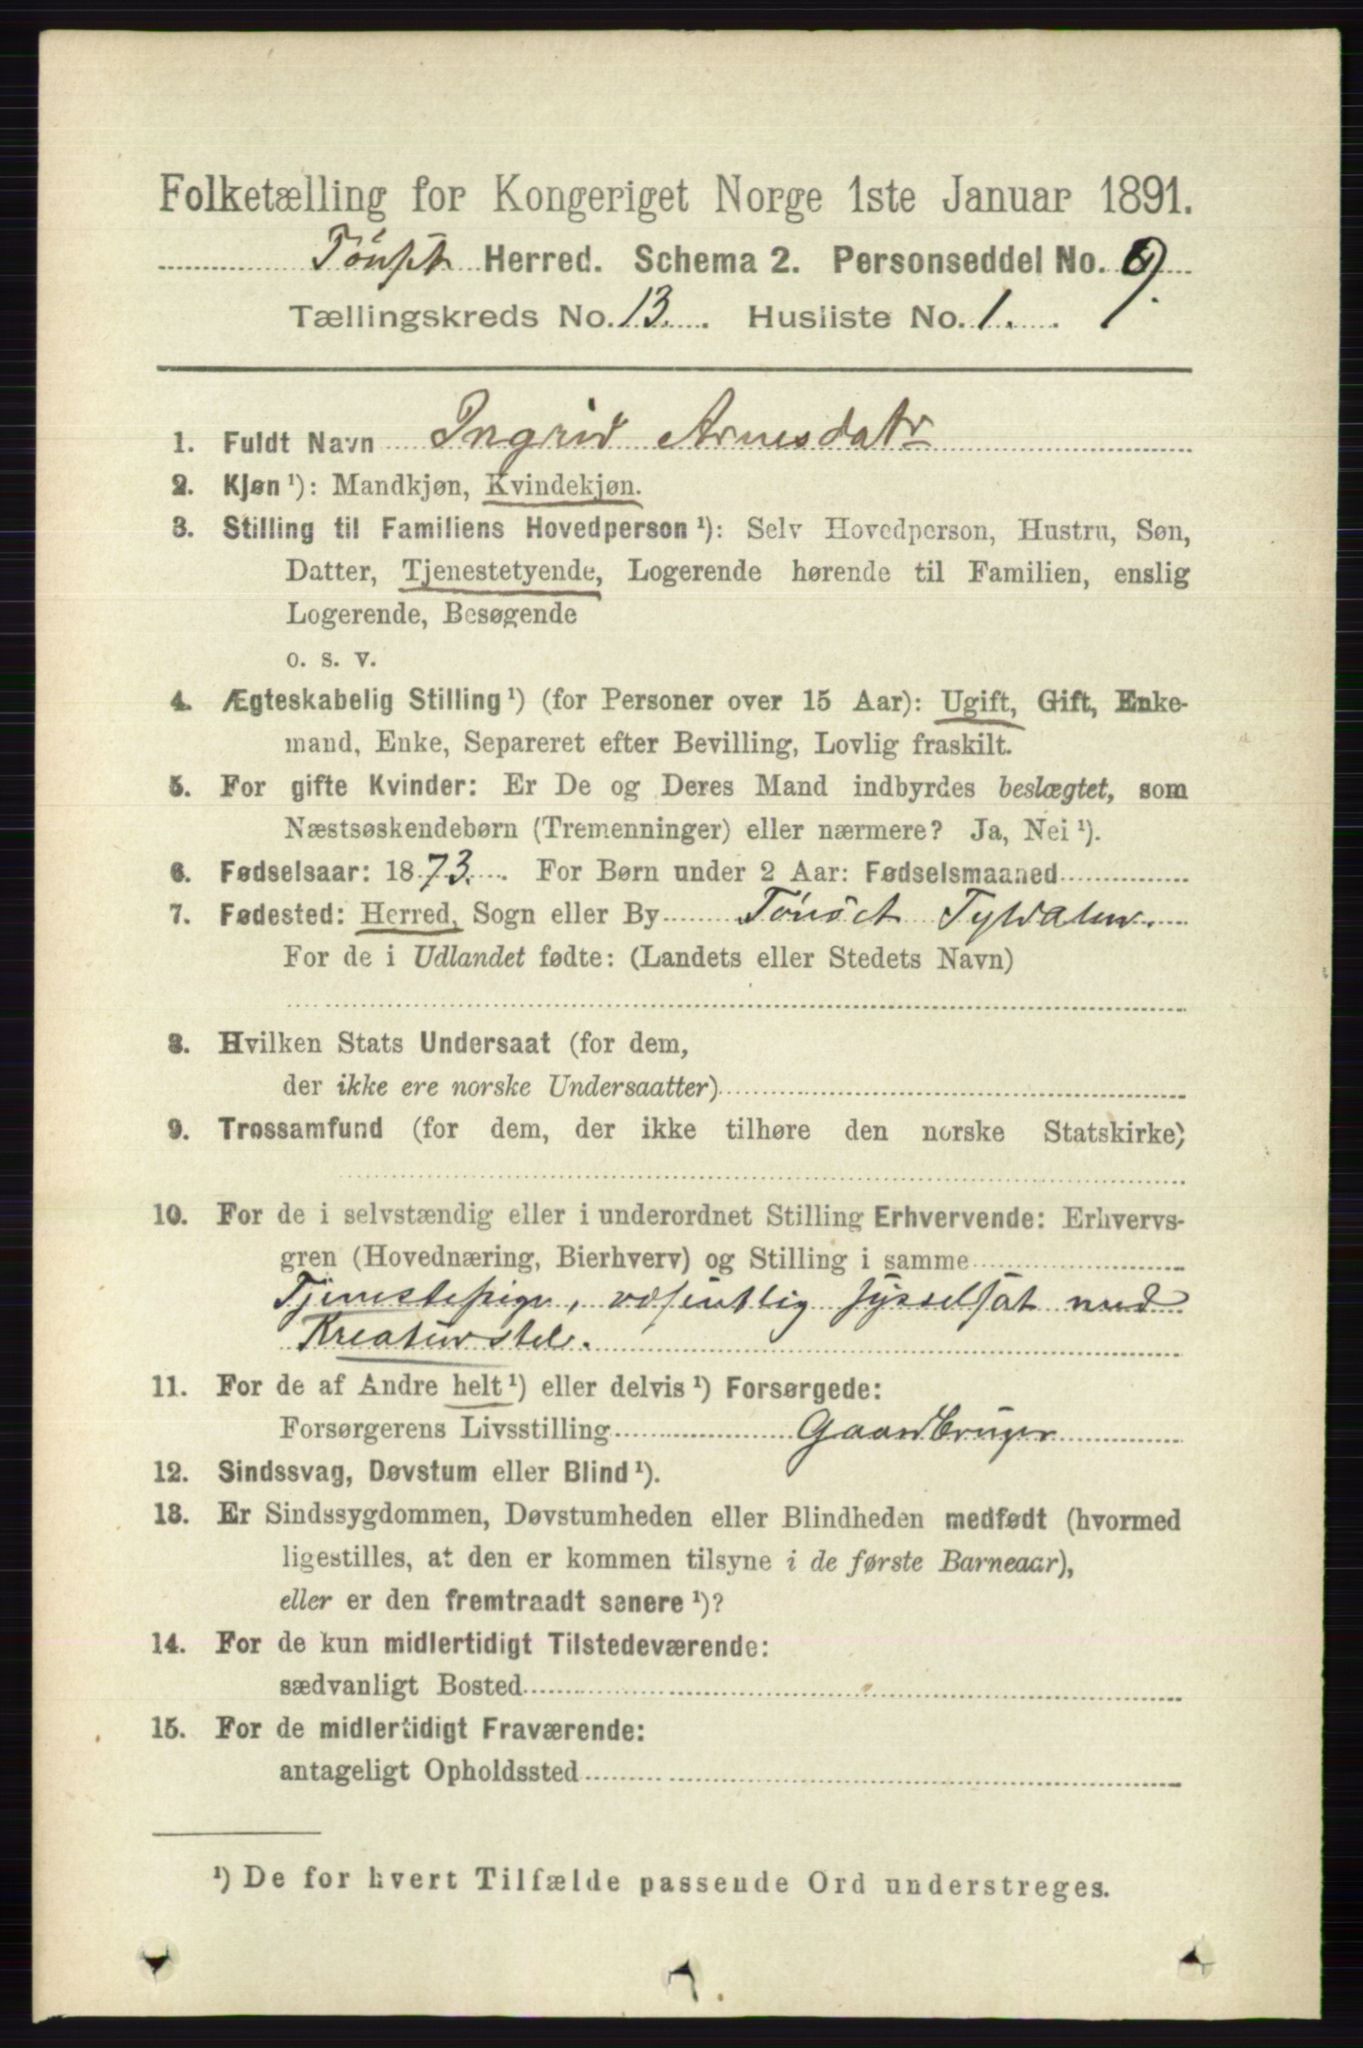 Folketælling for Kongeriget Norge 1ste Januar 1891.
Tönset Herred. Schema 2. Personseddel No. 9.
Tællingskreds No. 13. Husliste No. 1.
1. Fuldt Navn Ingrid Arnesdatr
2. Kjøn ¹): Mandkjøn, Kvindekjøn.
3. Stilling til Familiens Hovedperson ¹): Selv Hovedperson, Hustru, Søn,
Datter, Tjenestetyende, Logerende hørende til Familien, enslig
Logerende, Besøgende
o. s. v.
4. Ægteskabelig Stilling ¹) (for Personer over 15 Aar): Ugift, Gift, Enke-
mand, Enke, Separeret efter Bevilling, Lovlig fraskilt.
5. For gifte Kvinder: Er De og Deres Mand indbyrdes beslægtet, som
Næstsøskendebørn (Tremenninger) eller nærmere? Ja, Nei ¹).
6. Fødselsaar: 1873. For Børn under 2 Aar: Fødselsmaaned
7. Fødested: Herred, Sogn eller By Tönset Tyldalen.
For de i Udlandet fødte: (Landets eller Stedets Navn)
8. Hvilken Stats Undersaat (for dem,
der ikke ere norske Undersaatter)
9. Trossamfund (for dem, der ikke tilhøre den norske Statskirke)
10. For de i selvstændig eller i underordnet Stilling Erhvervende: Erhvervs-
gren (Hovednæring, Bierhverv) og Stilling i samme
Tjenestepige, væsentlig sysselsat med
Kreaturstel.
11. For de af Andre helt ¹) eller delvis ¹) Forsørgede:
Forsørgerens Livsstilling Gaardbruger
12. Sindssvag, Døvstum eller Blind ¹).
13. Er Sindssygdommen, Døvstumheden eller Blindheden medfødt (hvormed
ligestilles, at den er kommen tilsyne i de første Barneaar),
eller er den fremtraadt senere ¹)?
14. For de kun midlertidigt Tilstedeværende:
sædvanligt Bosted
15. For de midlertidigt Fraværende:
antageligt Opholdssted
¹) De for hvert Tilfælde passende Ord understreges.